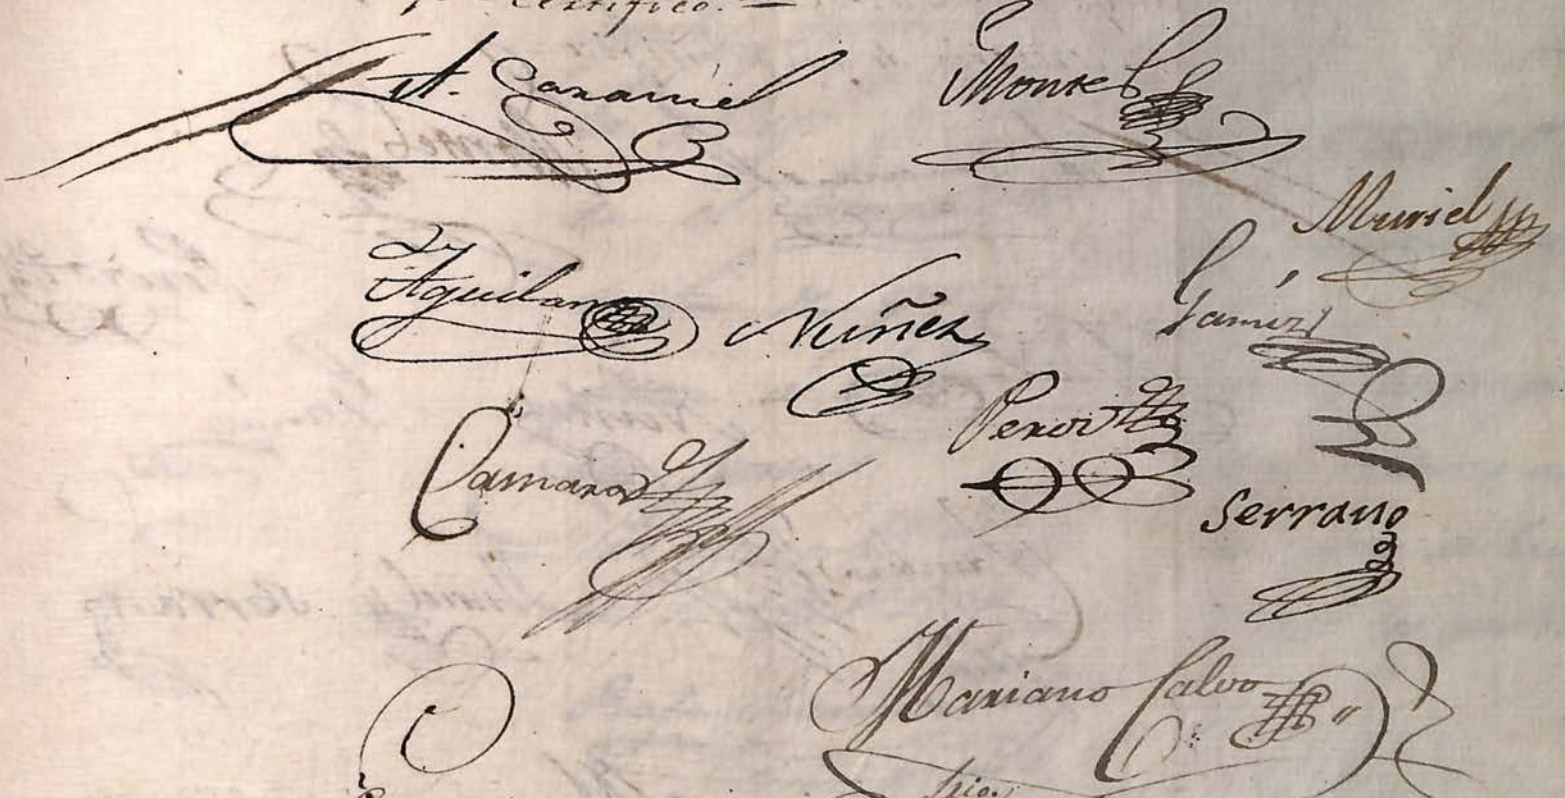 certifico. =
A. Caraviel
Montel
Muriel
Aguilar
Nuñez
Gamiz
Camara
Serrano
Mariano Calvo
Srio.